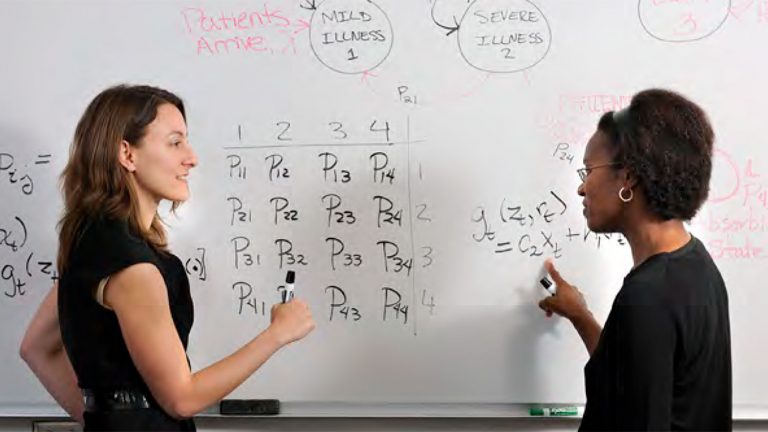 Patients
Arrive
MILD
ILLNESS
1
SEVERE
ILLNESS
2
3
P21
P24
Pij =
1 2 3 4
P11 P12 P13 P14 1
P21 P22 P23 P24 2
P31 P32 P33 P34 3
P41 P43 P44 4
gt (zt, rt)
= C2 Xt +
gt (z
[·]
State